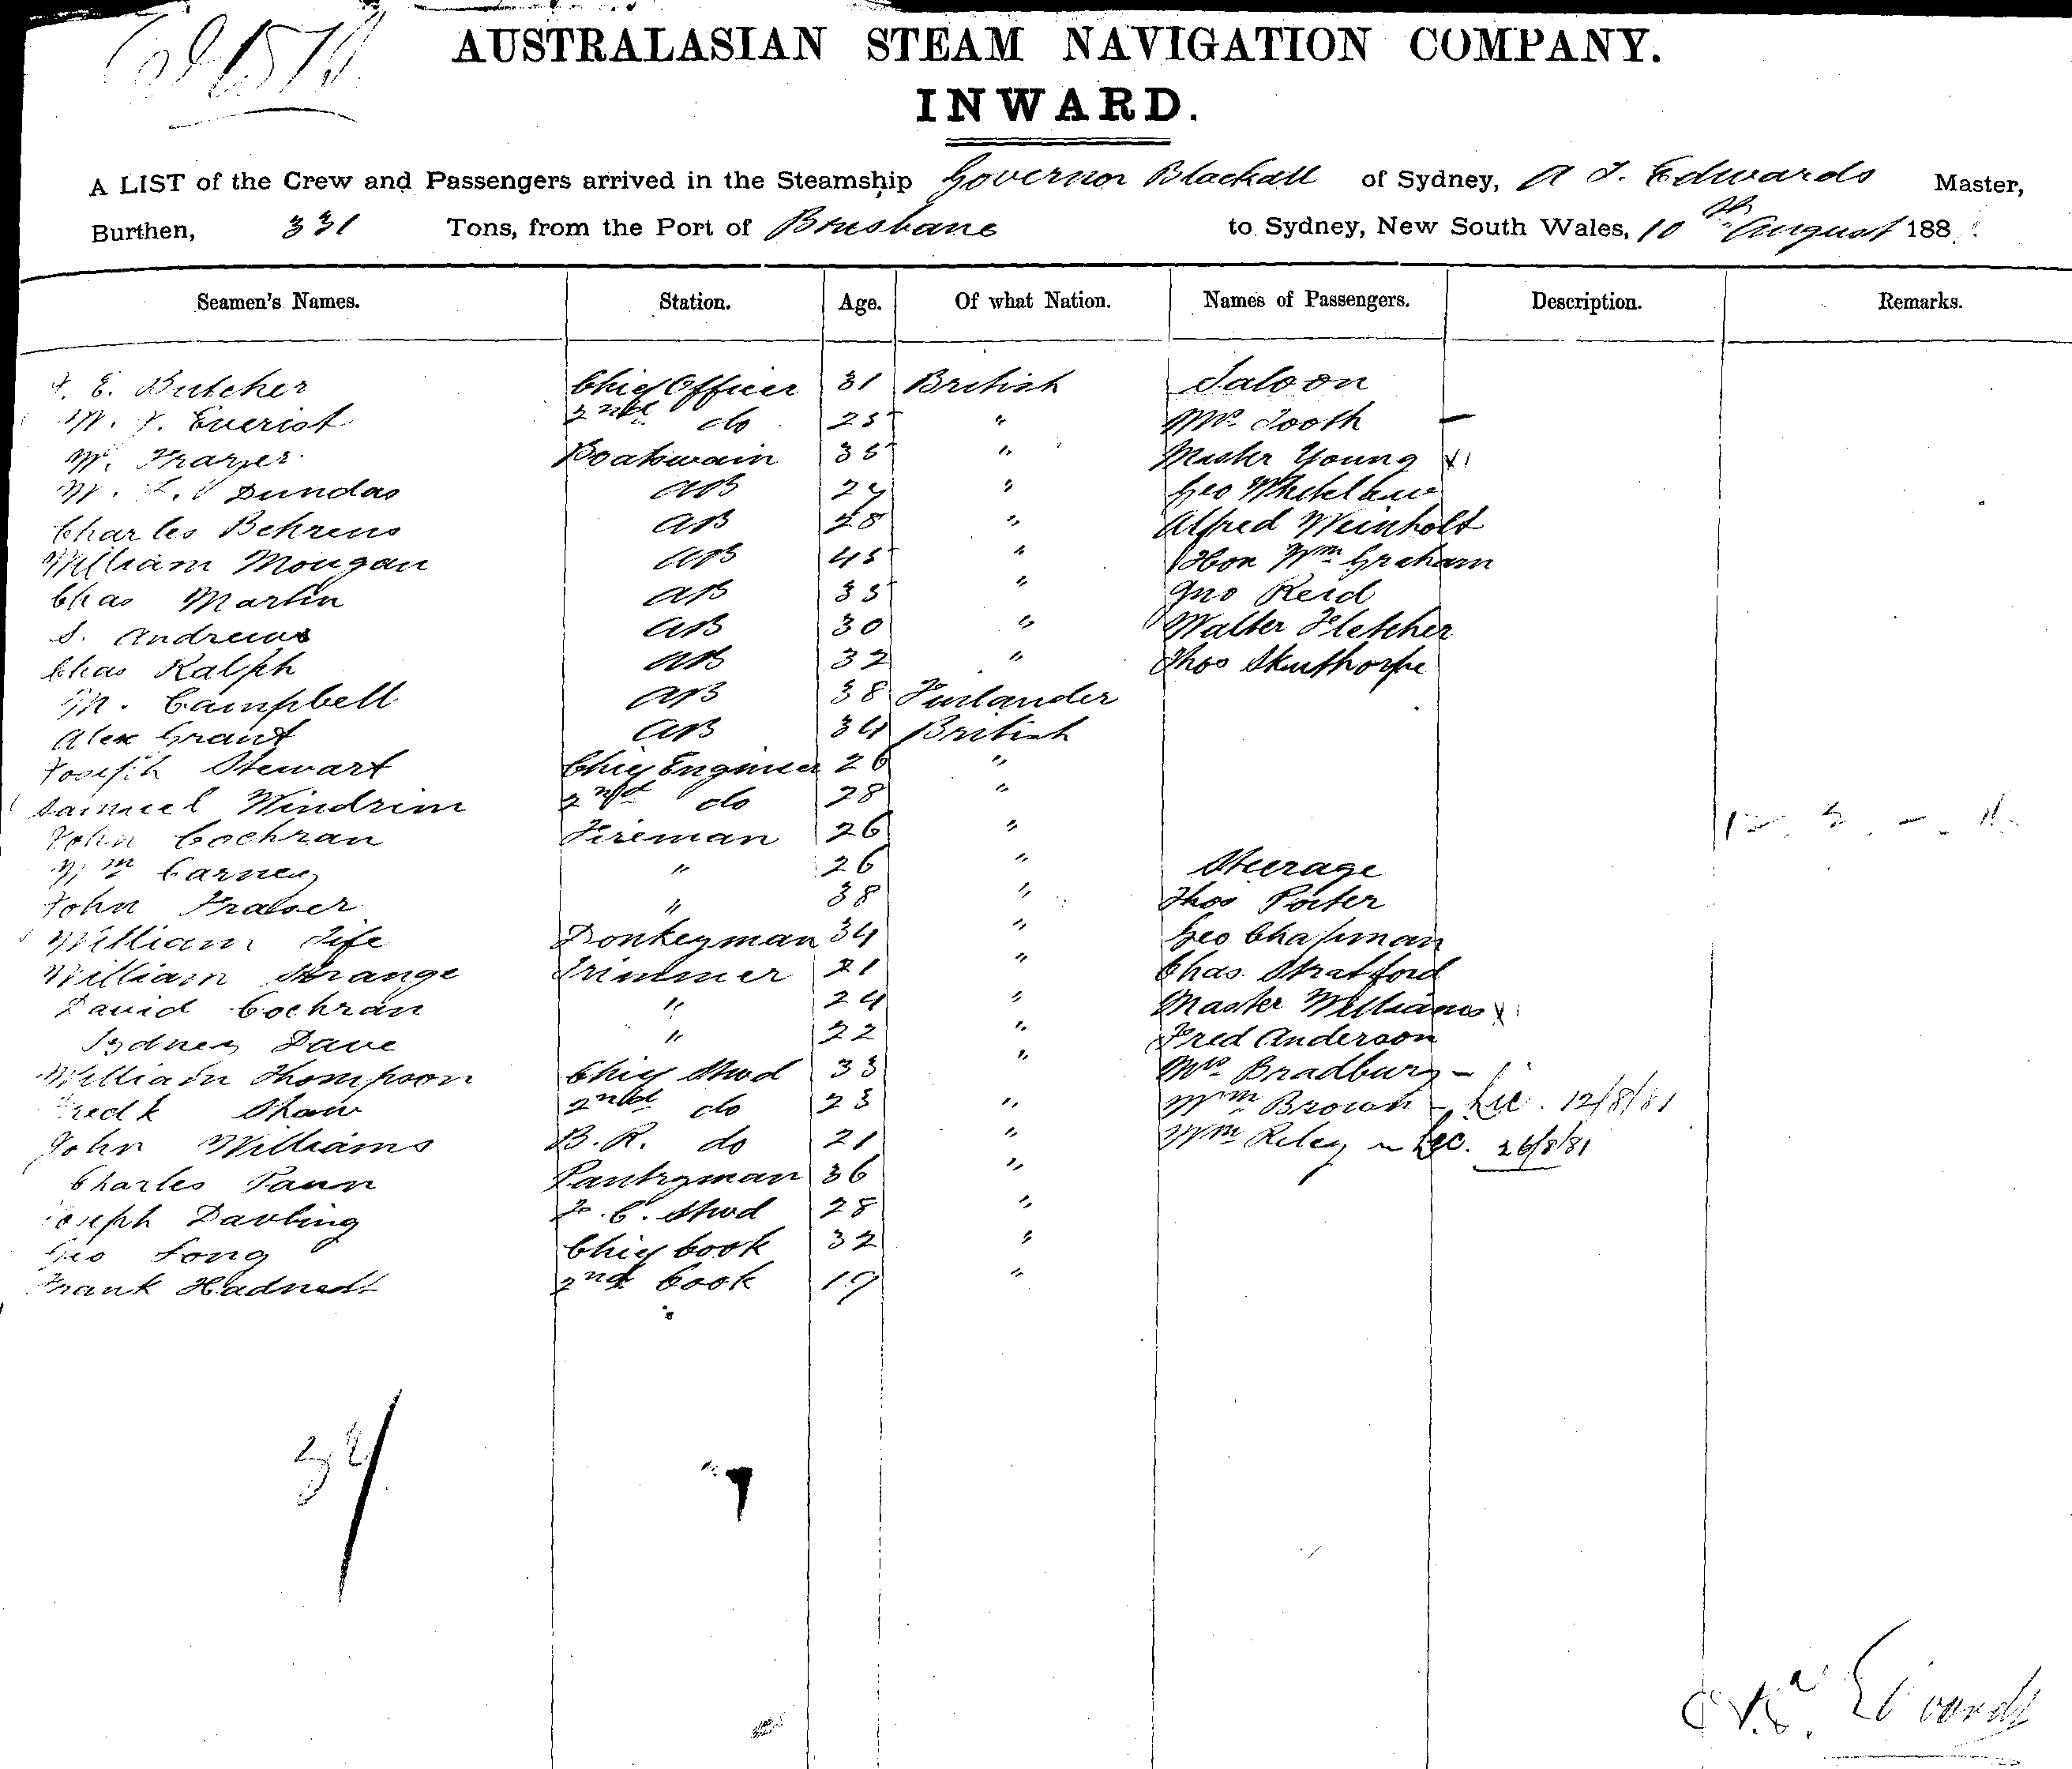 AUSTRALASIAN STEAM NAVIGATION COMPANY.
INWARD.
A LIST of the Crew and Passengers arrived in the Steamship Governor Blackall of Sydney, A J. Edwards Master,
Burthen, 331 Tons, from the Port of Brisbane to Sydney, New South Wales, 10th August 188
Seamen's Names. Station. Age. Of what Nation. Names of Passengers. Description. Remarks.
E. Butcher Chief Officer 31 British Saloon
Everist 2nd do 25 " Mrs Tooth —
W. Frazer Boatswain 35 " Master Young
Dundas AB 24 " Geo
Charles Behrens AB 28 " Alfred Weinholt
William Mongan AB 45 " Hon Wm Graham
Chas Martin AB 35 " Jno Reid
S. Andrews AB 30 " Walter Fletcher
Chas Ralph AB 32 " Thos Skuthorpe
M. Campbell AB 38 Finlander
Alex Grant AB 34 British
Joseph Stewart Chief Engineer 26 "
Samuel Windrim 2nd do 28 "
John Cochran Fireman 26 "
Wm Carney " 26 " Steerage
John Fraser " 38 " Thos Porter
William Fife Donkeyman 34 " Geo Chapman
William Strange Trimmer 21 " Chas. Stratford
David Cochran " 24 " Master Williams
Sydney Dave " 22 " Fred Anderson
William Thompson Chief Stwd 33 " Mrs Bradbury —
Fredk Shaw 2nd do 23 " Wm Brown — Lic. 12/8/81
John Williams B. R. do 21 " Wm Riley — Lic. 26/8/81
Charles Pantryman 36 "
Joseph Darling F. C. Stwd 28 "
Geo Long Chief Cook 32 "
Frank Hadnett 2nd Cook 19 "
Edwards